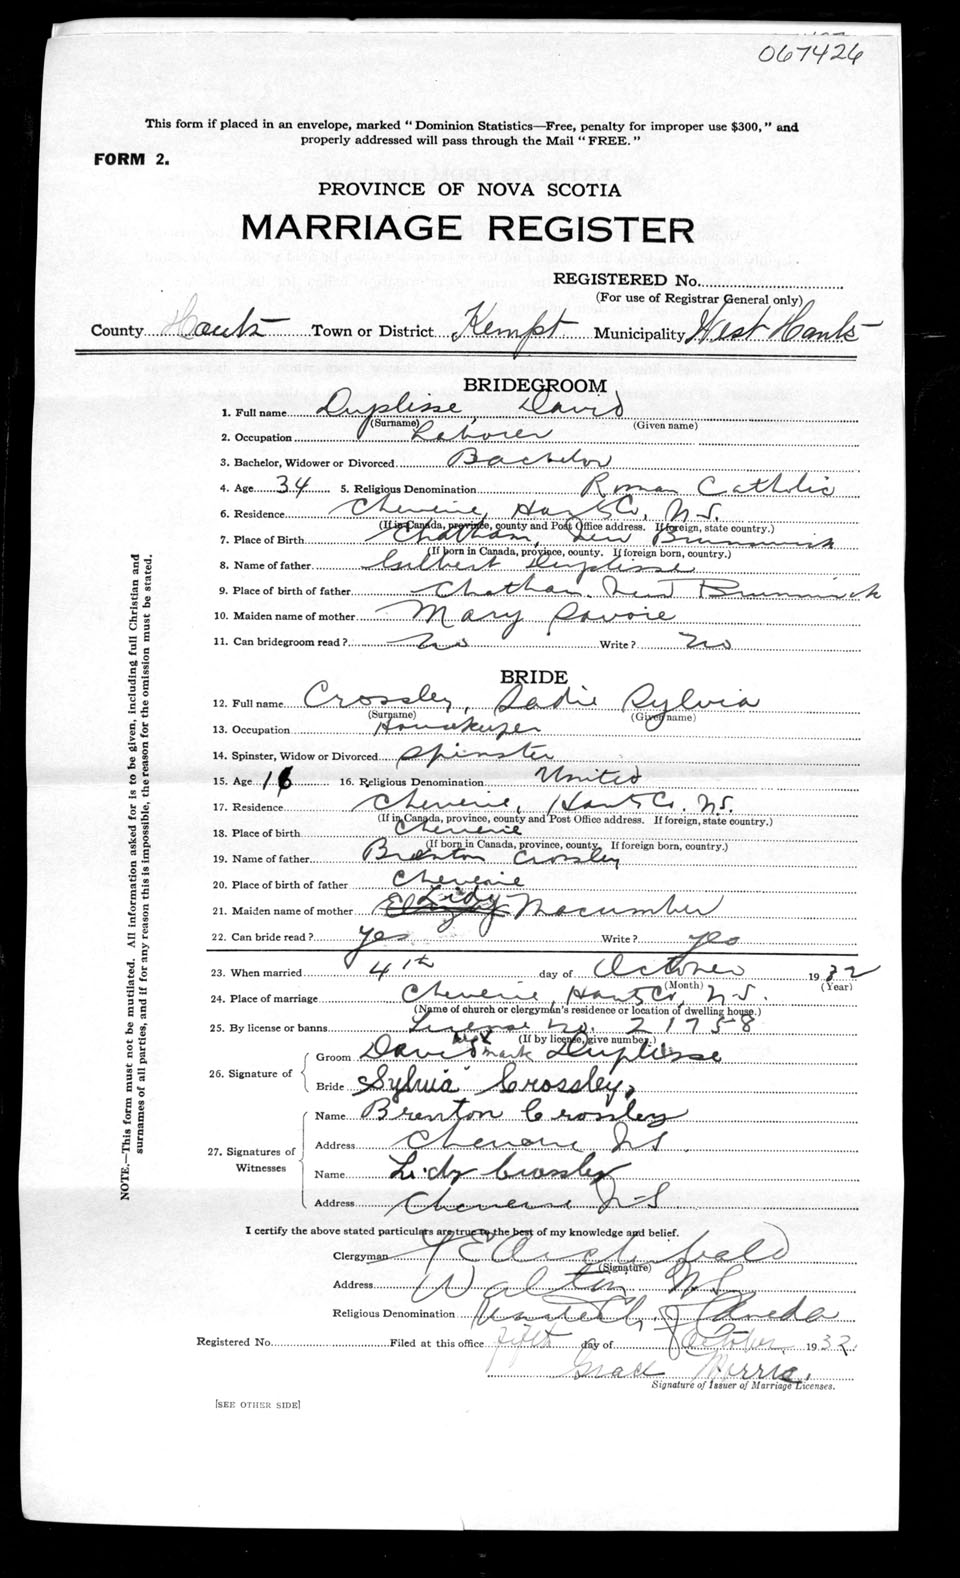 067426
This form if placed in an envelope, marked "Dominion Statistics—Free, penalty for improper use $300," and
properly addressed will pass through the Mail "FREE."
FORM 2.
PROVINCE OF NOVA SCOTIA
MARRIAGE REGISTER
REGISTERED No.
(For use of Registrar General only)
County Hants Town or District Kempt Municipality West Hants
BRIDEGROOM
1. Full name Duplisse, David
(Surname) (Given name)
2. Occupation Laborer
3. Bachelor, Widower or Divorced Bachelor
4. Age 34 5. Religious Denomination Roman Catholic
6. Residence Cheverie, Hants Co., N.S.
(If in Canada, province, county and Post Office address. If foreign, state country.)
7. Place of Birth Chatham, New Brunswick
(If born in Canada, province, county. If foreign born, country.)
8. Name of father Gilbert Duplisse
9. Place of birth of father Chatham New Brunswick
10. Maiden name of mother Mary Savoie
11. Can bridegroom read? no Write? no
BRIDE
12. Full name Crossley, Sadie Sylvia
(Surname) (Given name)
13. Occupation Housekeeper
14. Spinster, Widow or Divorced Spinster
15. Age 16 16. Religious Denomination United
17. Residence Cheverie, Hants Co. N.S.
(If in Canada, province, county and Post Office address. If foreign, state country.)
18. Place of birth Cheverie
(If born in Canada, province, county. If foreign born, country.)
19. Name of father Brenton Crossley
20. Place of birth of father Cheverie
21. Maiden name of mother Lidy Macumber
22. Can bride read? yes Write? yes
23. When married 4th day of October 1932
(Month) (Year)
24. Place of marriage Cheverie, Hants Co., N.S.
(Name of church or clergyman's residence or location of dwelling house.)
25. By license or banns License No. 21758
(If by license, give number.)
26. Signature of
Groom David his X mark Duplisse
Bride Sylvia Crossley,
27. Signatures of Witnesses
Name Brenton Crossley
Address Cheverie N S
Name Lidy Crossley
Address Cheverie N-S
I certify the above stated particulars are true to the best of my knowledge and belief.
Clergyman Archibald
(Signature)
Address Walton N.S.
Religious Denomination United Ch. of Canada
Registered No. Filed at this office fifth day of October, 1932.
Grace
Signature of Issuer of Marriage Licenses.
[SEE OTHER SIDE]
NOTE.—This form must not be mutilated. All information asked for is to be given, including full Christian and
surnames of all parties, and if for any reason this is impossible, the reason for the omission must be stated.